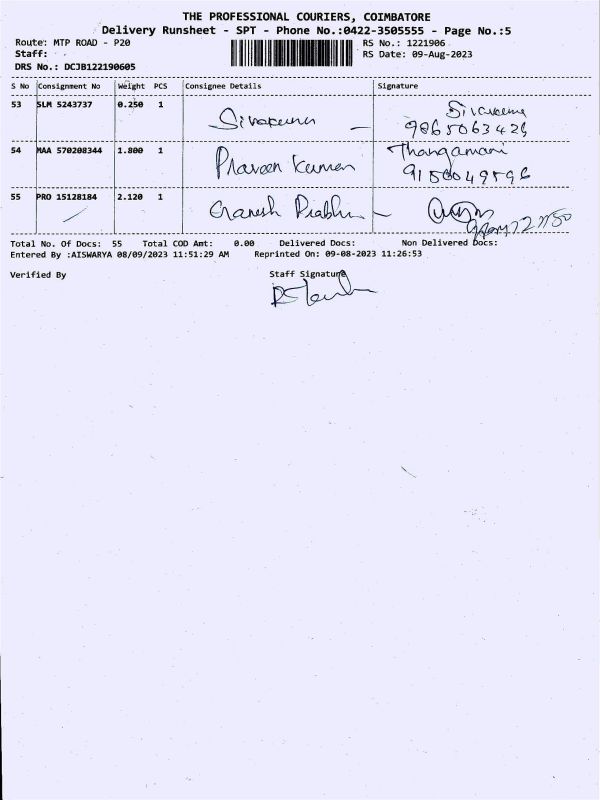 THE PROFESSIONAL COURIERS, COIMBATORE
Delivery Runsheet - SPT - Phone No.:0422-3505555 - Page No.:5
Route: MTP ROAD - P20 RS No.: 1221906
Staff: RS Date: 09-Aug-2023
DRS No.: DCJB122190605
S No Consignment No Weight PCS Consignee Details Signature
53 SLM 5243737 0.250 1 Sivakumar Sivakumar
9865063426
54 MAA 570208344 1.800 1 Praveen Kumar Thangamani
55 PRO 15128184 2.120 1 Ganesh Prabhu
Total No. Of Docs: 55 Total COD Amt: 0.00 Delivered Docs: Non Delivered Docs:
Entered By :AISWARYA 08/09/2023 11:51:29 AM Reprinted On: 09-08-2023 11:26:53
Verified By Staff Signature